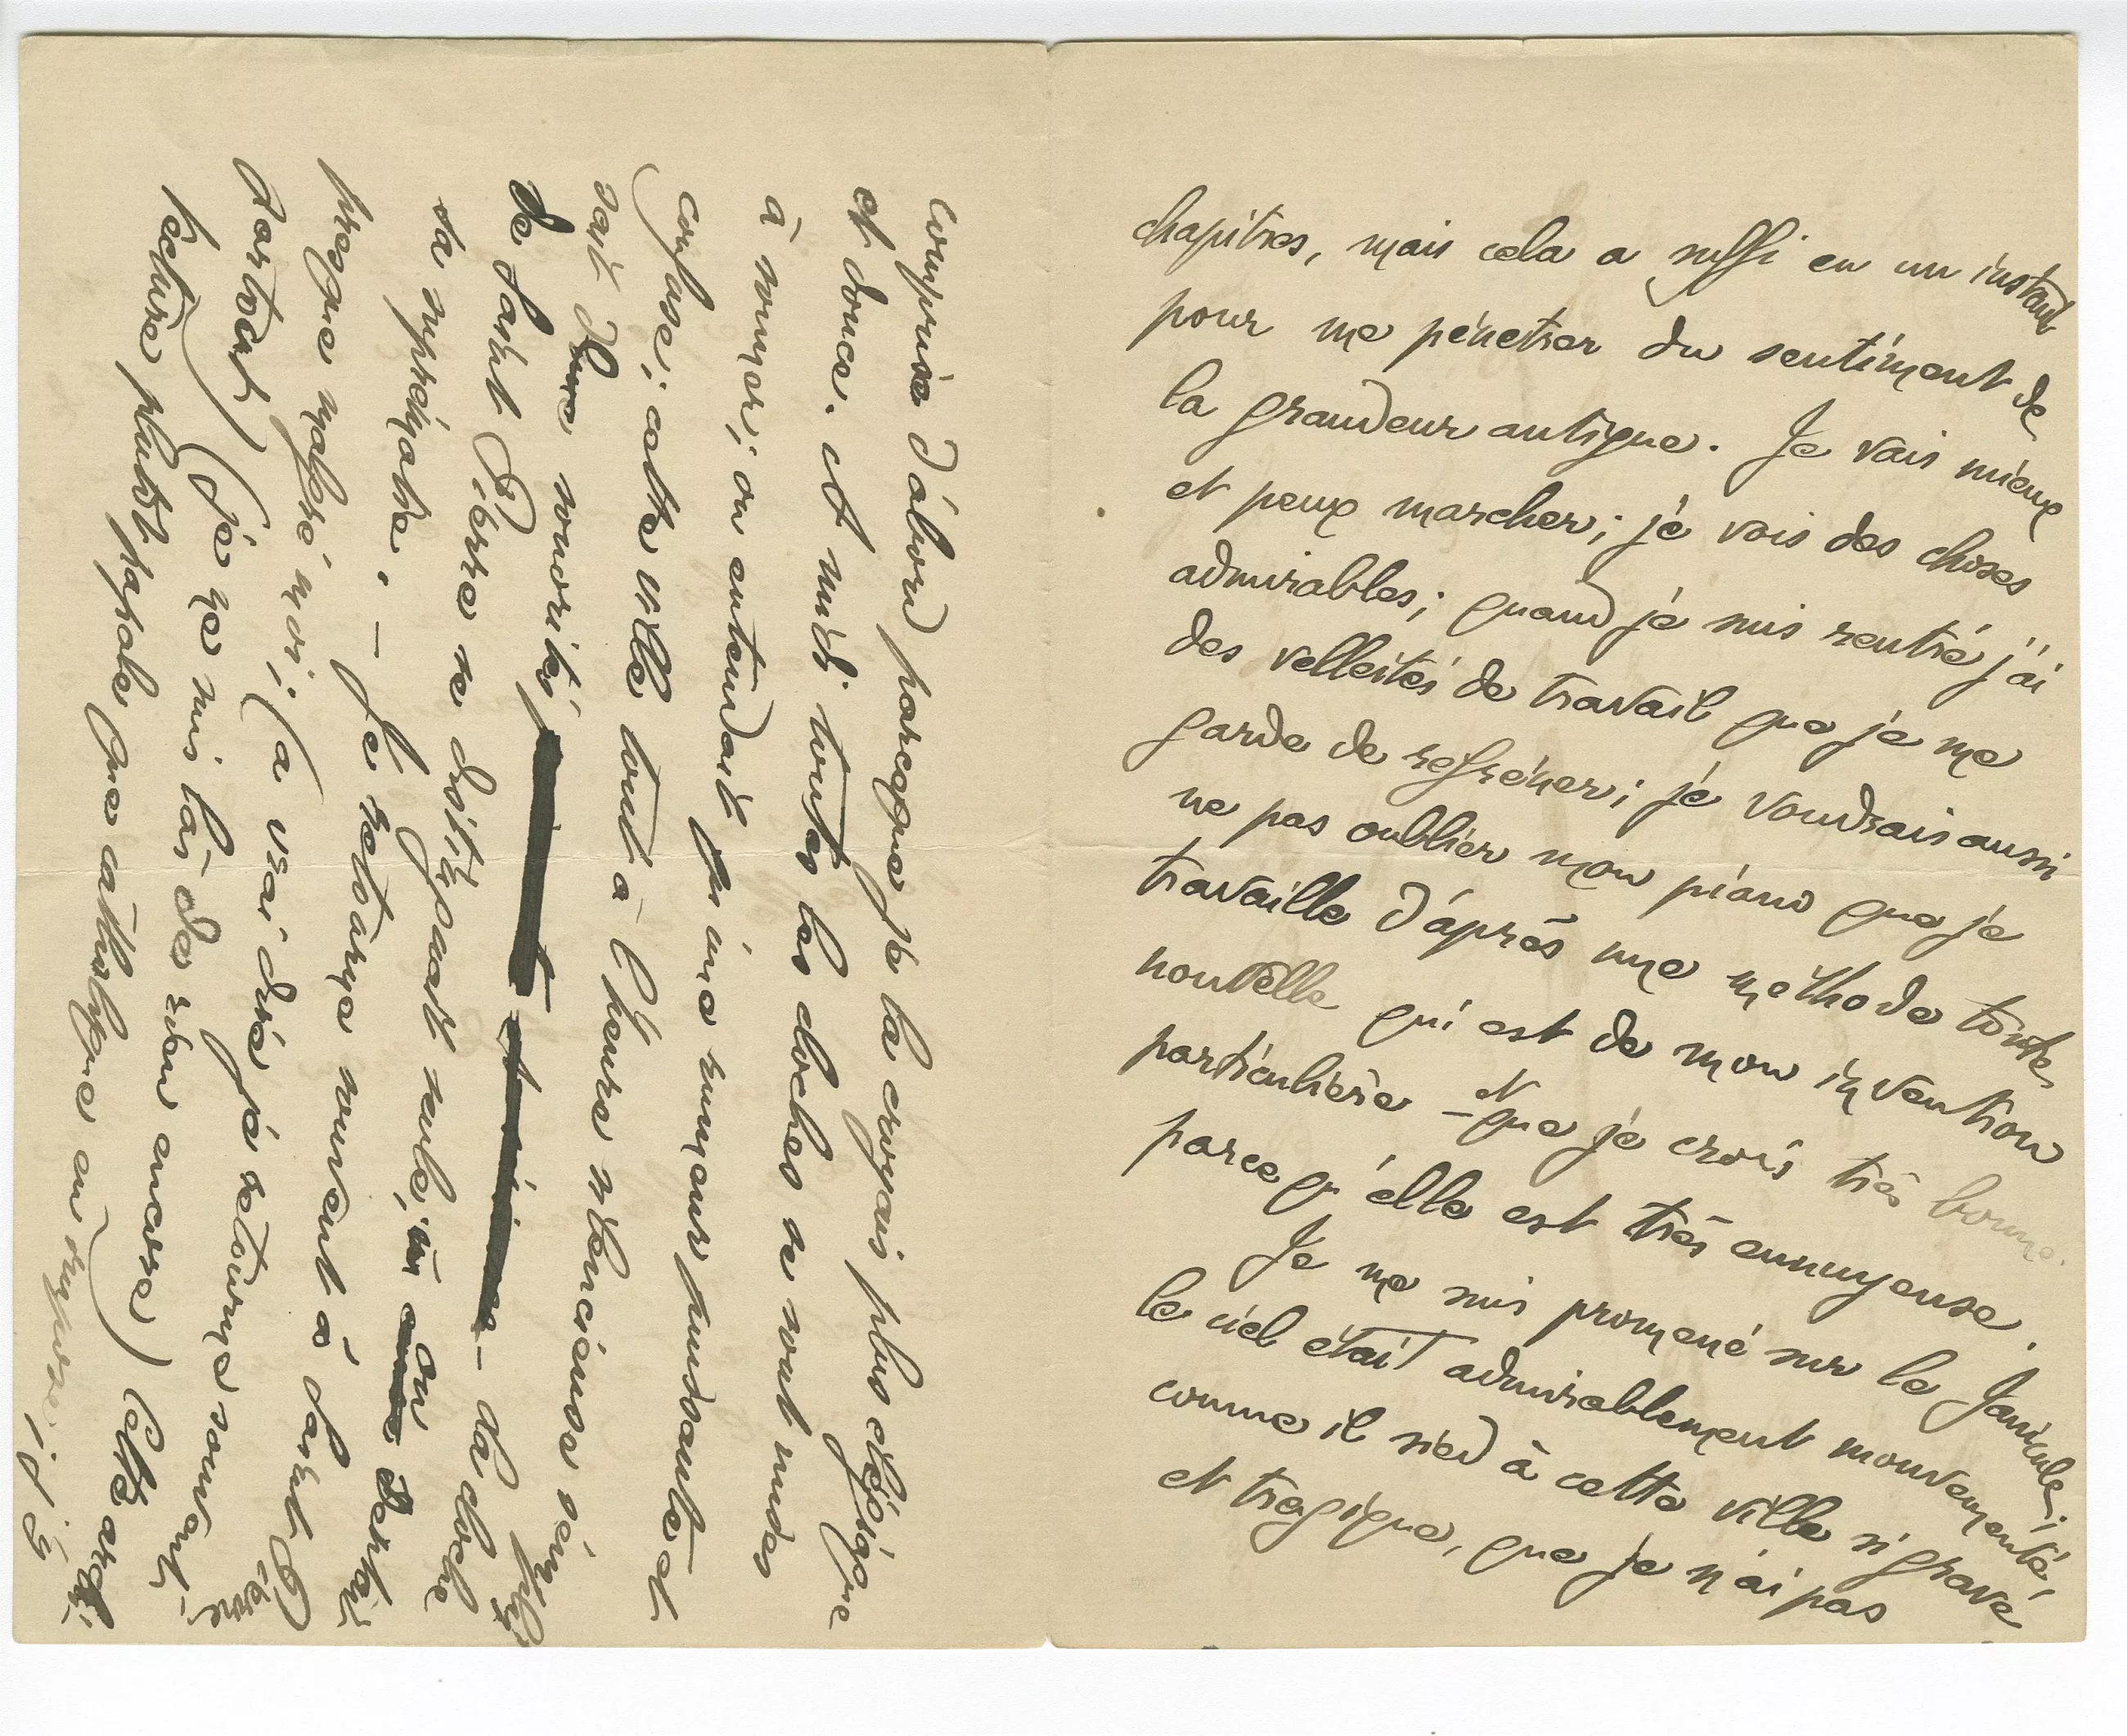 chapitres, mais cela a suffi en un instant
pour me pénétrer du sentiment de
la grandeur antique. Je vais mieux
et peux marcher; je vois des choses
admirables; quand je suis rentré j'ai
des velleités de travail que je me
garde de refréner; je voudrais aussi
ne pas oublier mon piano que je
travaille d'après une méthode toute
nouvelle qui est de mon invention
particulière – et que je crois très bonne
parcequ'elle est très ennuyeuse.
Je me suis promené sur le Janicule;
le ciel était admirablement mouvementé,
comme il sied à cette ville si grave
et tragique, que je n'ai pas
comprise d'abord parceque je la croyais plus élégiaque
et douce. A midi toutes les cloches se sont mises
à sonner; on entendait qu'une rumeur puissante et
confuse; cette ville tout à l'heure silencieuse s'emplis
sait d'une sonorité – la cloche
de Saint Pierre se distinguait seule, on sentait
sa suprématie. – Je retourne souvent à Saint Pierre
presque malgré moi; (à vrai dire je retourne souvent
partout) (je ne suis las de rien encore) Cette archi-
tecture plutôt papale que catholique en impose; il y